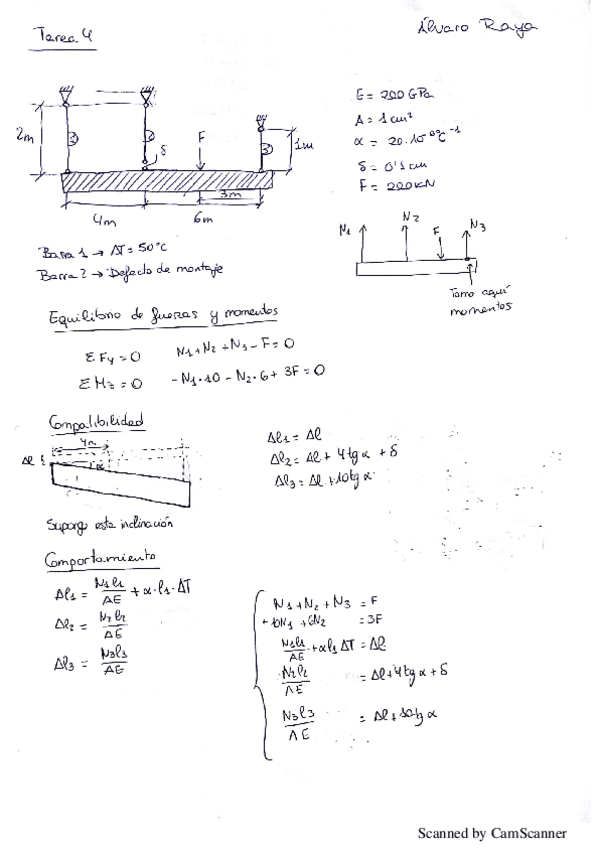 Tarea 4
Álvaro Raya
E = 200 GPa
A = 1 cm²
α = 20·10⁻⁶ ºC⁻¹
δ = 0'1 cm
F = 200 kN
2m
δ
F
1m
3m
4m
6m
N1
N2
F
N3
Tomo aquí
momentos
Barra 1 → ΔT = 50°C
Barra 2 → Defecto de montaje
Equilibrio de fuerzas y momentos
ΣFy = 0 N1 + N2 + N3 - F = 0
ΣMz = 0 -N1·10 - N2·6 + 3F = 0
Compatibilidad
4m
Δl
α
Δl1 = Δl
Δl2 = Δl + 4tgα + δ
Δl3 = Δl + 10tgα
Supongo esta inclinación
Comportamiento
Δl1 = N1l1/AE + α·l1·ΔT
Δl2 = N2l2/AE
Δl3 = N3l3/AE
N1 + N2 + N3 = F
+10N1 + 6N2 = 3F
N1l1/AE + αl1ΔT = Δl
N2l2/AE = Δl + 4tgα + δ
N3l3/AE = Δl + 10tgα
Scanned by CamScanner